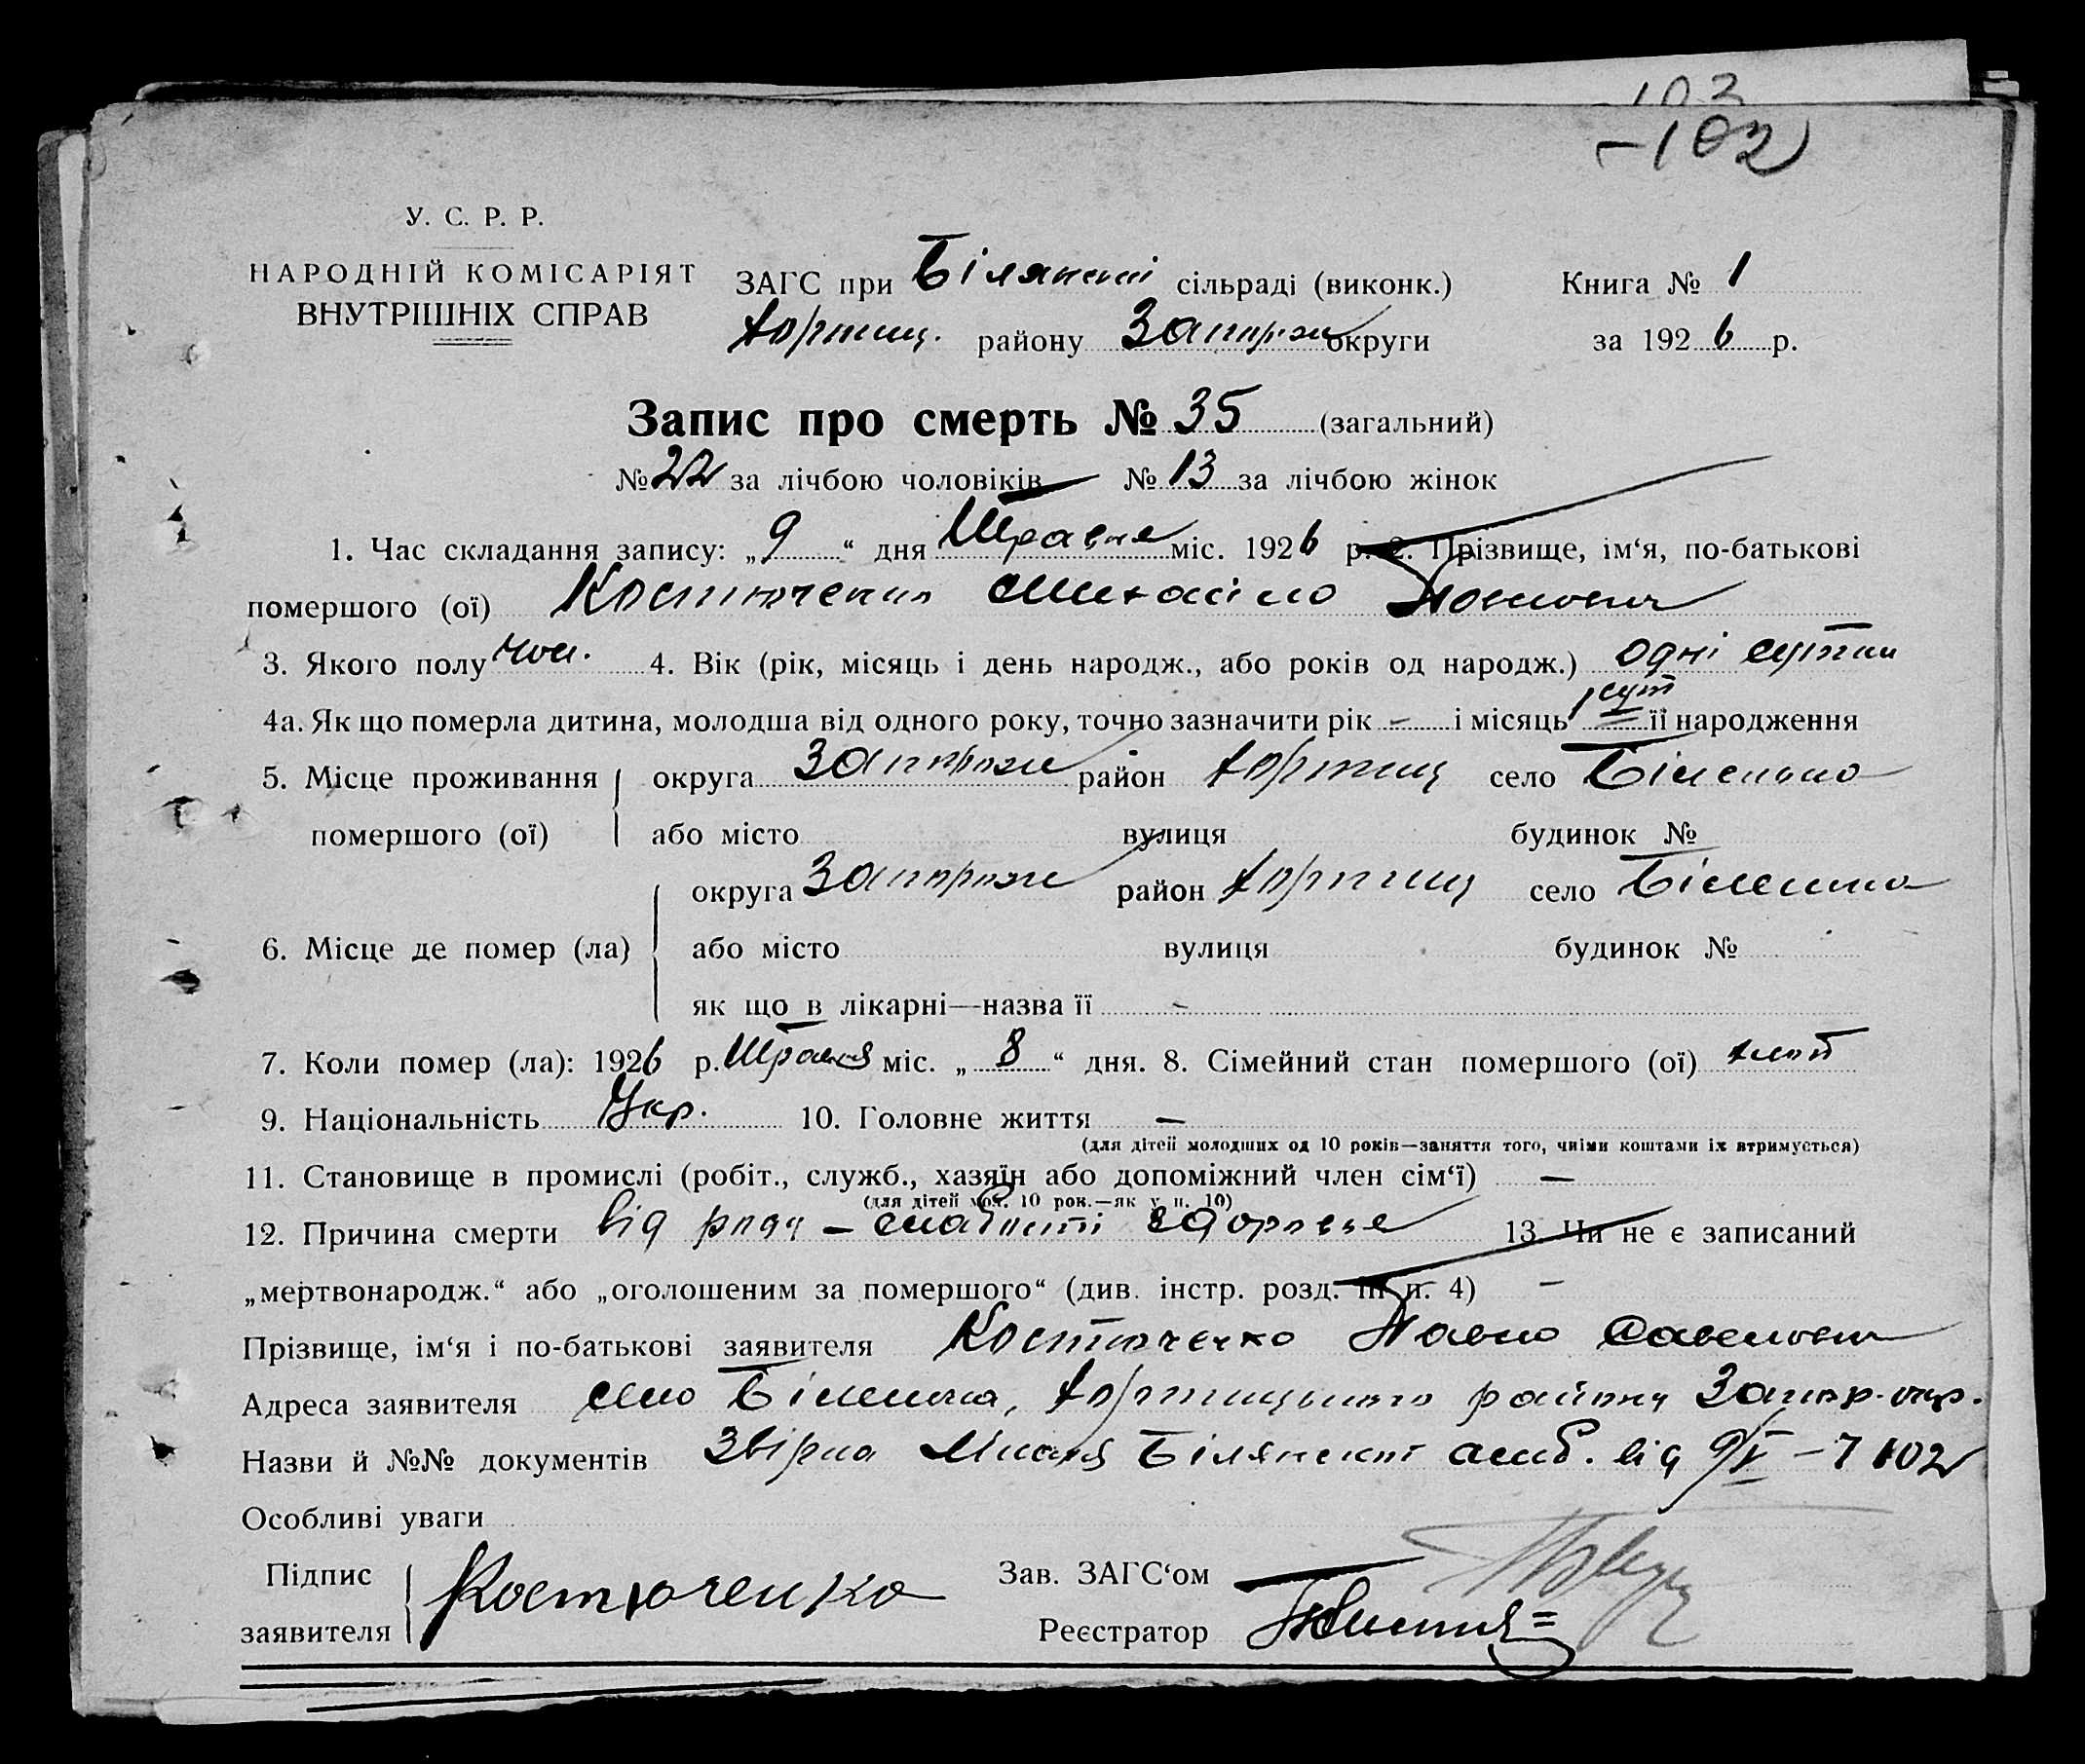 103
-102
У. С. Р. Р.
НАРОДНІЙ КОМІСАРІЯТ
ВНУТРІШНІХ СПРАВ
ЗАГС при Білянській сільраді (виконк.) Книга № 1
Хортиц. району Запорож округи за 1926 р.
Запис про смерть № 35 (загальний)
№ 22 за лічбою чоловіків № 13 за лічбою жінок
1. Час складання запису: „9“ дня Травня міс. 1926 р. 2. Прізвище, ім‘я, по-батькові
помершого (ої) Костюченко Михайло Павлович
3. Якого полу чол. 4. Вік (рік, місяць і день народж., або років од народж.) одні сутки
4а. Як що померла дитина, молодша від одного року, точно зазначити рік – і місяць 1 сут її народження
5. Місце проживання округа Запорож район Хортиц село Біленьке
помершого (ої) або місто вулиця будинок №
округа Запорож район Хортиц село Біленьке
6. Місце де помер (ла) або місто вулиця будинок №
як що в лікарні—назва її -
7. Коли помер (ла): 1926 р. Травня міс. „8“ дня. 8. Сімейний стан помершого (ої)
9. Національність Укр. 10. Головне життя —
(для дітей молодших од 10 років—заняття того, чиїми коштами їх втримується)
11. Становище в промислі (робіт., служб., хазяїн або допоміжний член сім‘ї) —
(для дітей мол. 10 рок.—як у п. 10)
12. Причина смерти від роду - слабости здоровья 13. Чи не є записаний
„мертвонародж.“ або „оголошеним за помершого“ (див. інстр. розд. III п. 4) —
Прізвище, ім‘я і по-батькові заявителя Костюченко Павло Савелович
Адреса заявителя село Біленьке, Хортицького району Запор. окр.
Назви й №№ документів Білянської амб. від 9/V - 7102
Особливі уваги
Підпис Зав. ЗАГС‘ом
Костюченко
заявителя Реєстратор